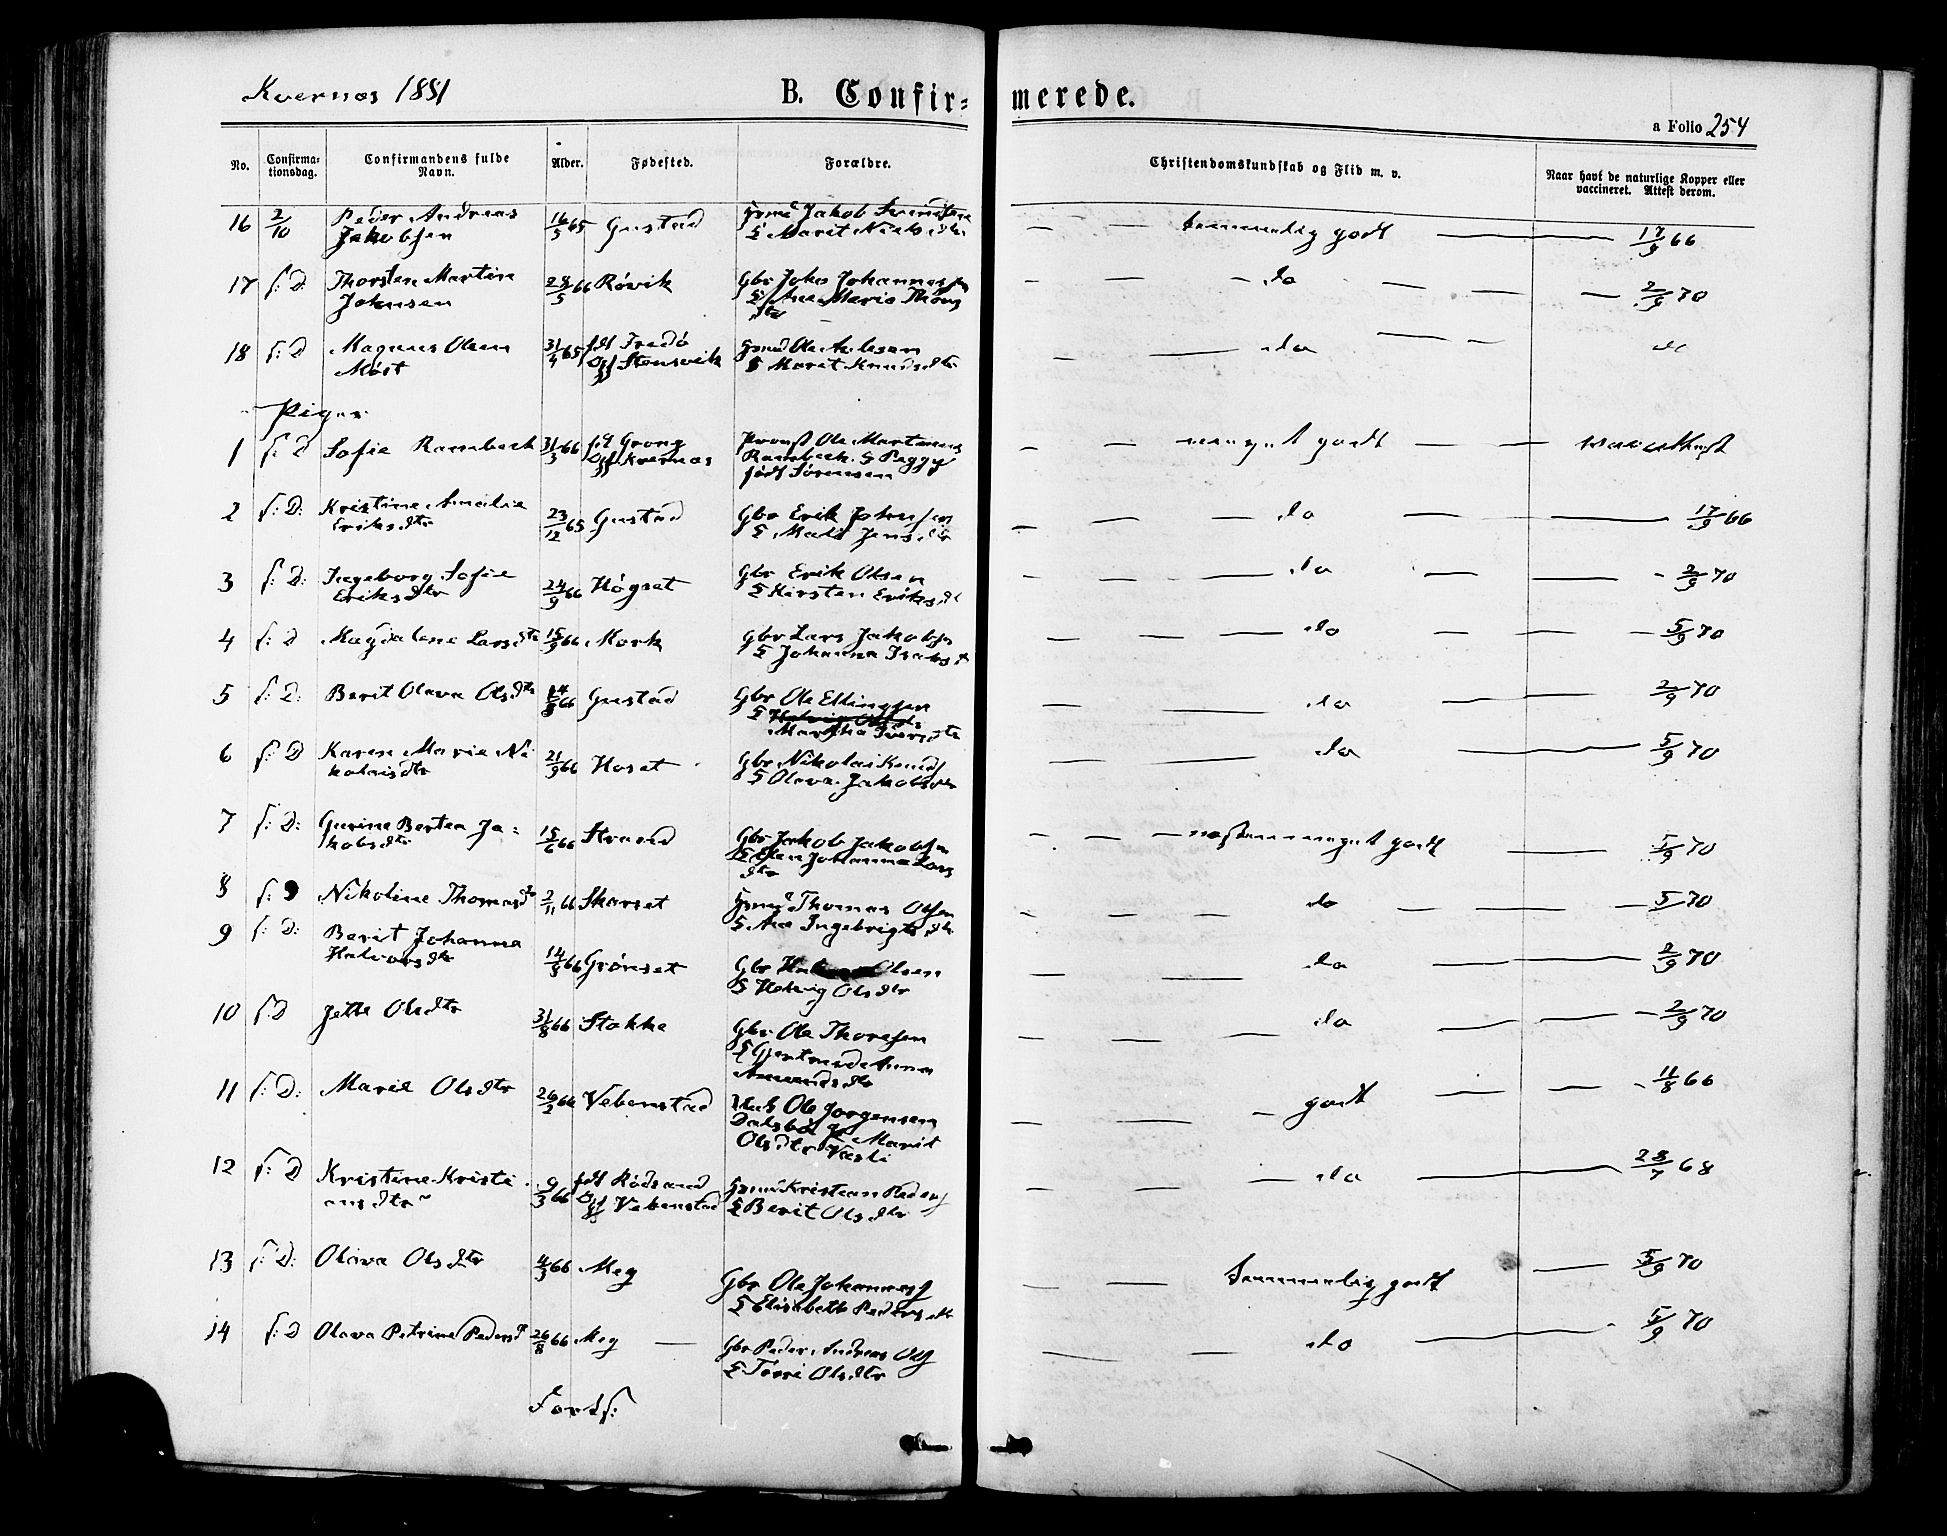 Kvernes 1881 B. Confir- merede.
a Folio 254
No. Confirma-tionsdag. Confirmandens fulde Navn. Alder. Fødested. Forældre. Christendomskundskab og Flid m. v. Naar havt de naturlige Kopper eller vaccineret. Attest derom.
16 2/10 Peder Andreas 16/5 65 Gustad Jakob temmelig godt 17/9 66
Jakobsen & Marit Nielsdtr
17 s: D: Thorsten Martin 28/5 66 Røvik Gbr Johs Johannessen do 2/9 70
Johnsen & Ane Maria
18 s: D Magnus Olsen 31/4 65 fdt Fredø Ole do do
Møst Opf Stensvik & Marit Knudsdtr
Piger
1 s: d Sofie Rambech 31/3 66 fdt Grong Provst Ole Martinus meget godt
Opf Kvernes Rambech & Peggy
født Sørensen
2 s: D: Kristine Amalie 23/12 65 Gustad Gbr Erik Johnsen do 17/9 66
Eriksdtr & Mali Jensdtr
3 s: D: Ingeborg Sofie 24/9 66 Høgset Gbr Erik Olsen do 2/9 70
Eriksdtr & Kirsten Eriksdt
4 s: D Magdalene Larsdtr 15/9 66 Mork Gbr Lars Jakobsen do 5/9 70
& Johanna
5 s: D: Berit Olava Olsdtr 14/8 66 Gustad Gbr Ole Ellingsen do 2/9 70
& Martha Iversdtr
6 s: D Karen Marie Ni- 21/9 66 Hoset Gbr Nikolai Knuds do 5/9 70
kolaisdtr & Olava Jakobsdtr
7 s: D: Gurine Bertea Ja- 15/6 66 Strand Gbr Jakob Jakobsen næsten meget godt 5/9 70
kobsdtr & Johanna Lars
dtr
8 s: D Nikoline Thomasdtr 2/11 66 Skarset Thomas Olsen do 5/70
& Ane Ingebrigtsdtr
9 s: D: Berit Johanna 14/8 66 Grønset Gbr Olsen do 2/9 70
Halvorsdtr & Helvig Olsdtr
10 s: D Jette Olsdtr 31/8 66 Stokke Gbr Ole Thoresen do 2/9 70
& Gjertrud Anna
Amundsdtr
11 s: D: Marie Olsdtr 26/2 66 Vebenstad Ole Jørgensen godt 11/8 66
Dalsbø & Marit
Olsdtr
12 s: D Kristine Kristi- 9/3 66 fdt Rødsand Kristian Peders do 28/7 68
ansdtr Opf Vebenstad & Berit Olsdtr
13 s: D: Olava Olsdtr 4/3 66 Meg Gbr Ole Johannes temmelig godt 5/9 70
& Elisabeth Pedersdtr
14 s: D Olava Petrine Pedersdt 26/8 66 Meg Gbr Peder Andreas Ols do 5/9 70
& Olsdtr
Forts: